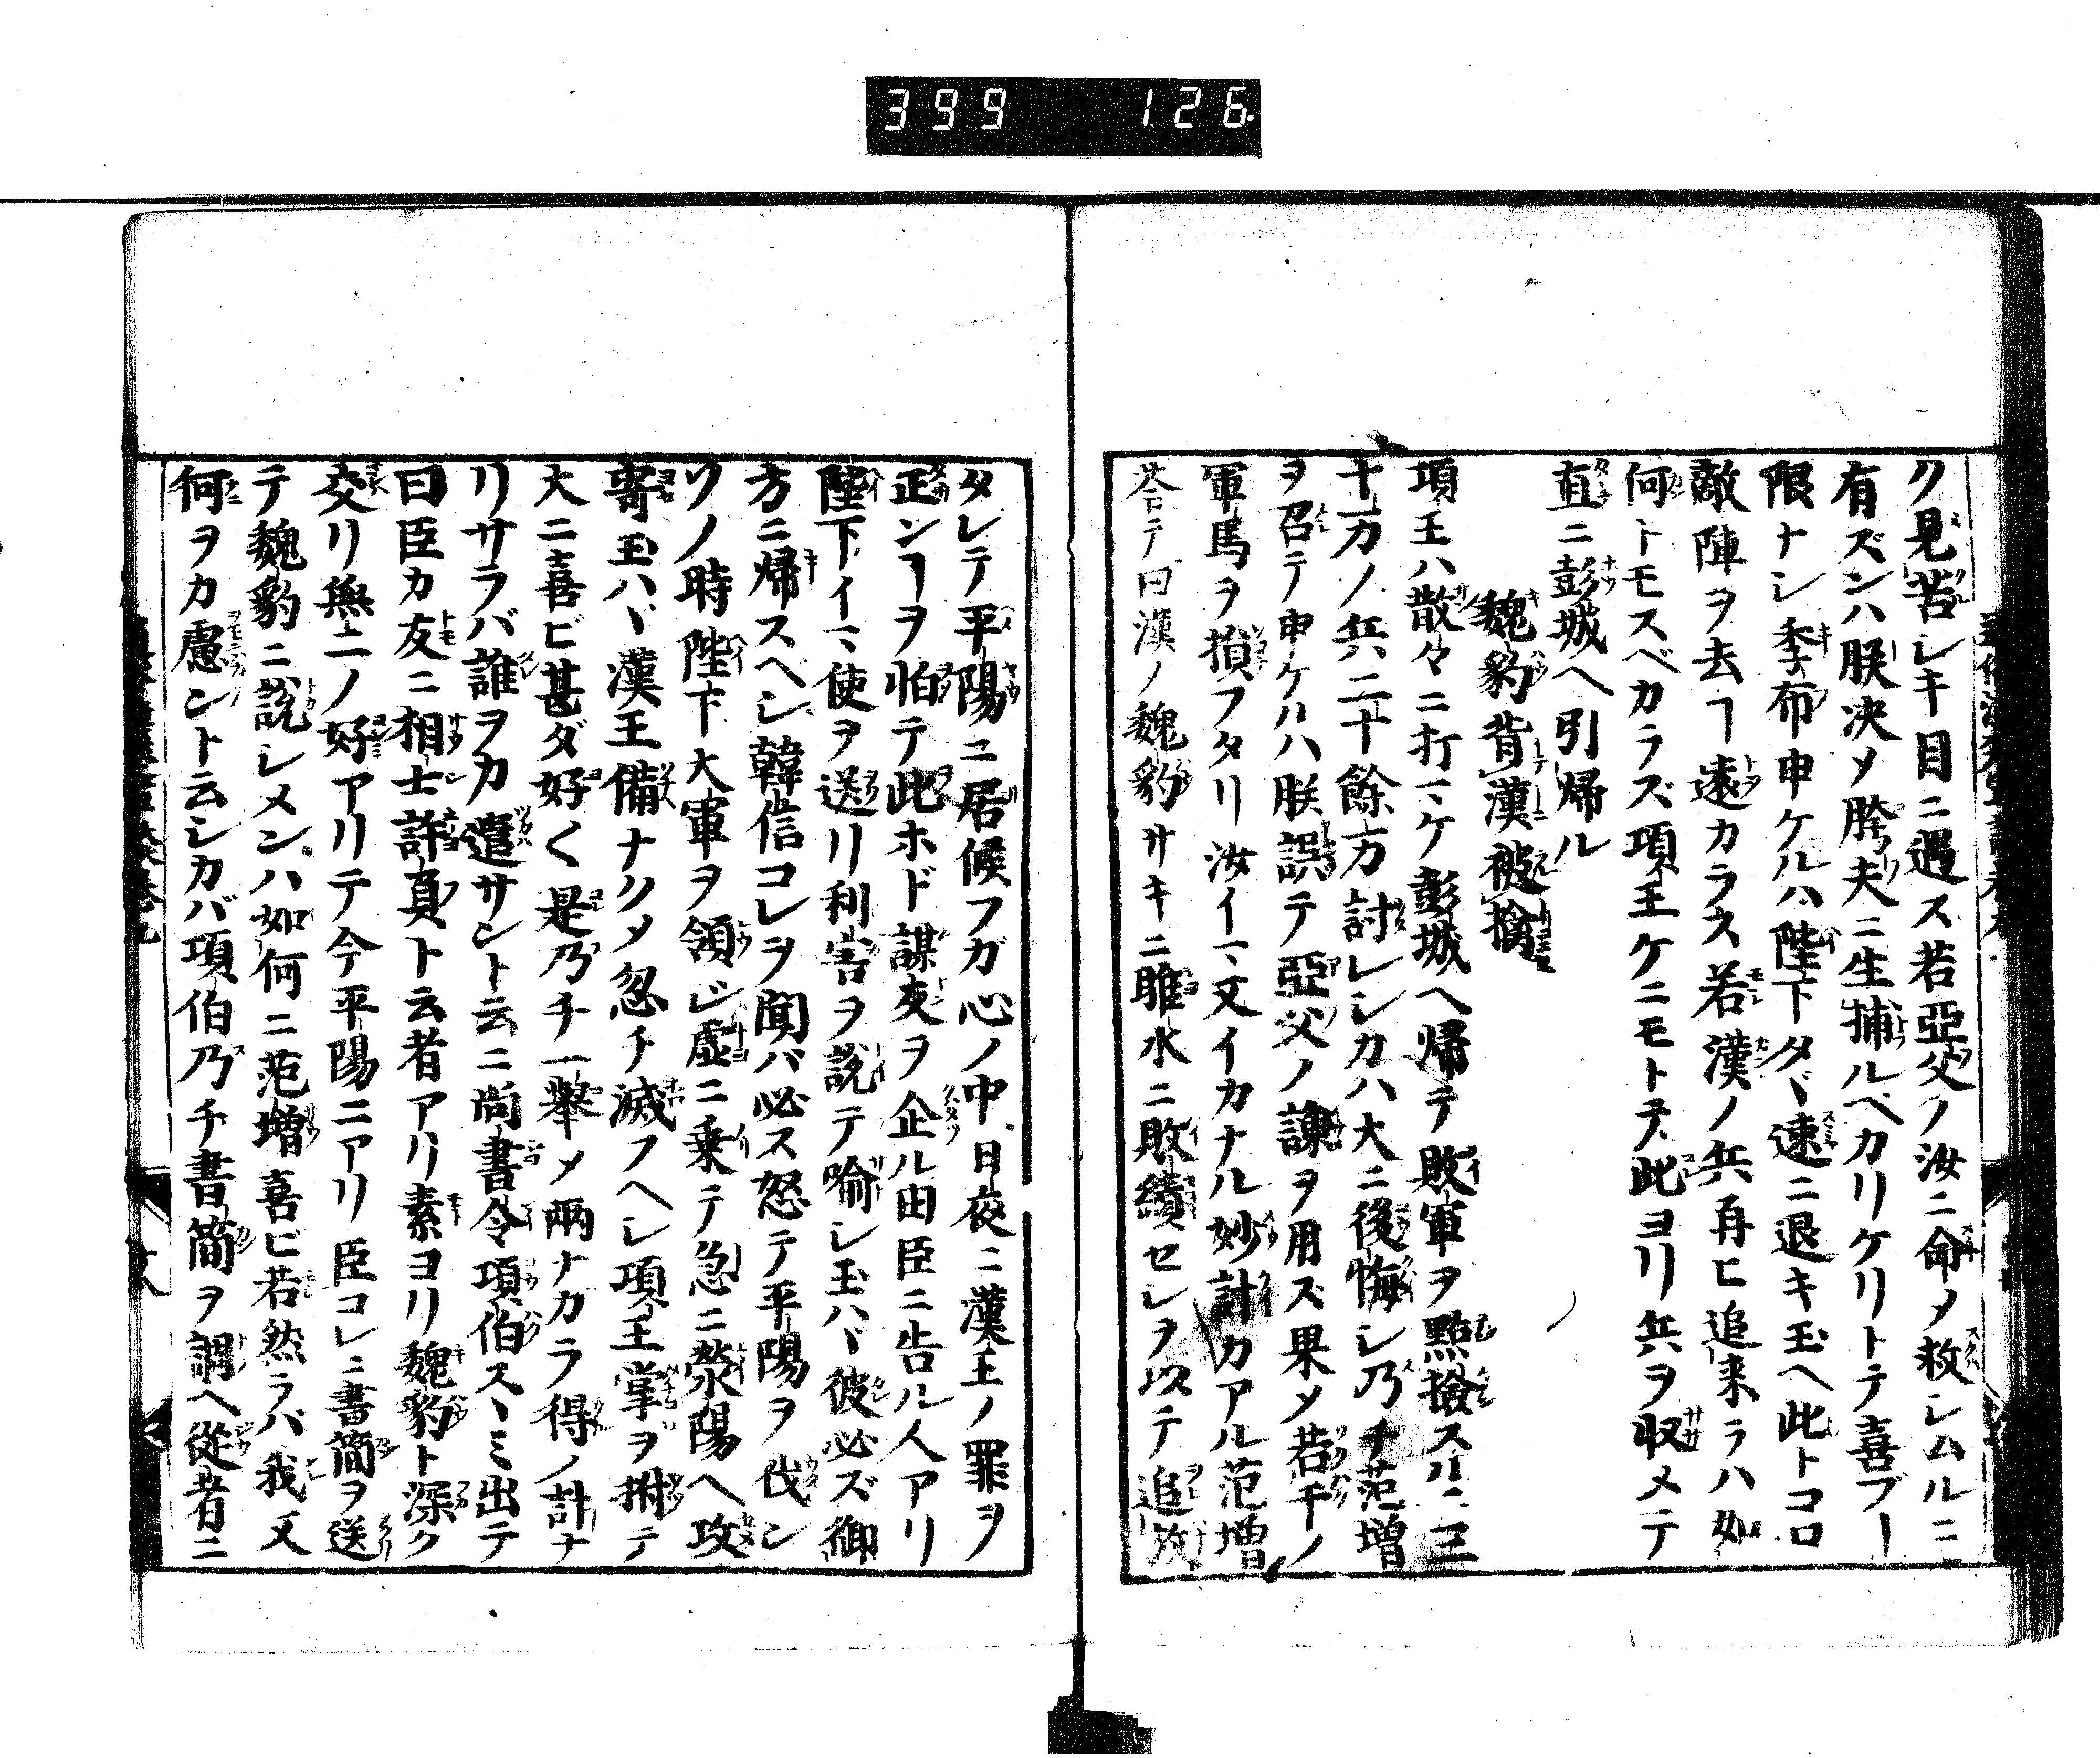 399 126
ク見苦レキ目ニ遇ス若亞父ノ汝ニ命メ救レムルニ
有ズンハ朕决メ胯夫ニ生捕ルヘカリケリトテ喜ブヿ
限ナシ季布申ケルハ陛下タヾ速ニ退キ玉ヘ此トコロ
敵陣ヲ去ヿ遠カラス若漢ノ兵再ヒ追来ラハ如
何トモスベカラズ項王ケニモトテ此ヨリ兵ヲ収メテ
直ニ彭城ヘ引帰ル
魏豹背漢被擒
項王ハ散々ニ打マケ彭城ヘ帰テ敗軍ヲ點撿スルニ三
十万ノ兵二十餘万討レシカハ大ニ後悔シ乃チ范増
ヲ召テ申ケルハ朕誤テ亞父ノ諌ヲ用ズ果メ若干ノ
軍馬ヲ損フタリ汝イマ又イカナル妙計カアル范増
荅テ曰漢ノ魏豹サキニ睢水ニ敗績セシヲ以テ追放
タレテ平陽ニ居候フガ心ノ中日夜ニ漢王ノ罪ヲ
正ンヿヲ怕テ此ホド謀友ヲ企ル由臣ニ告ル人アリ
陛下イマ使ヲ送リ利害ヲ説テ喻シ玉ハヾ彼必ズ御
方ニ帰スヘシ韓信コレヲ聞バ必ス怒テ平陽ヲ伐ン
ソノ時陛下大軍ヲ領ジ虚ニ乗テ急ニ滎陽ヘ攻
寄玉ハヾ漢王備ナクメ忽チ滅フヘシ項王掌ヲ拊テ
大ニ喜ビ甚ダ好く是乃チ一舉メ兩ナカラ得ノ計ナ
リサラバ誰ヲカ遣サント云ニ尚書令項伯スヽミ出テ
曰臣カ友ニ相士許負ト云者アリ素ヨリ魏豹ト深ク
交リ無二ノ好アリテ今平陽ニアリ臣コレニ書簡ヲ送
テ魏豹ニ説シメンハ如何ニ范増喜ビ若然ラバ我又
何ヲカ慮ント云シカバ項伯乃チ書簡ヲ調ヘ從者ニ